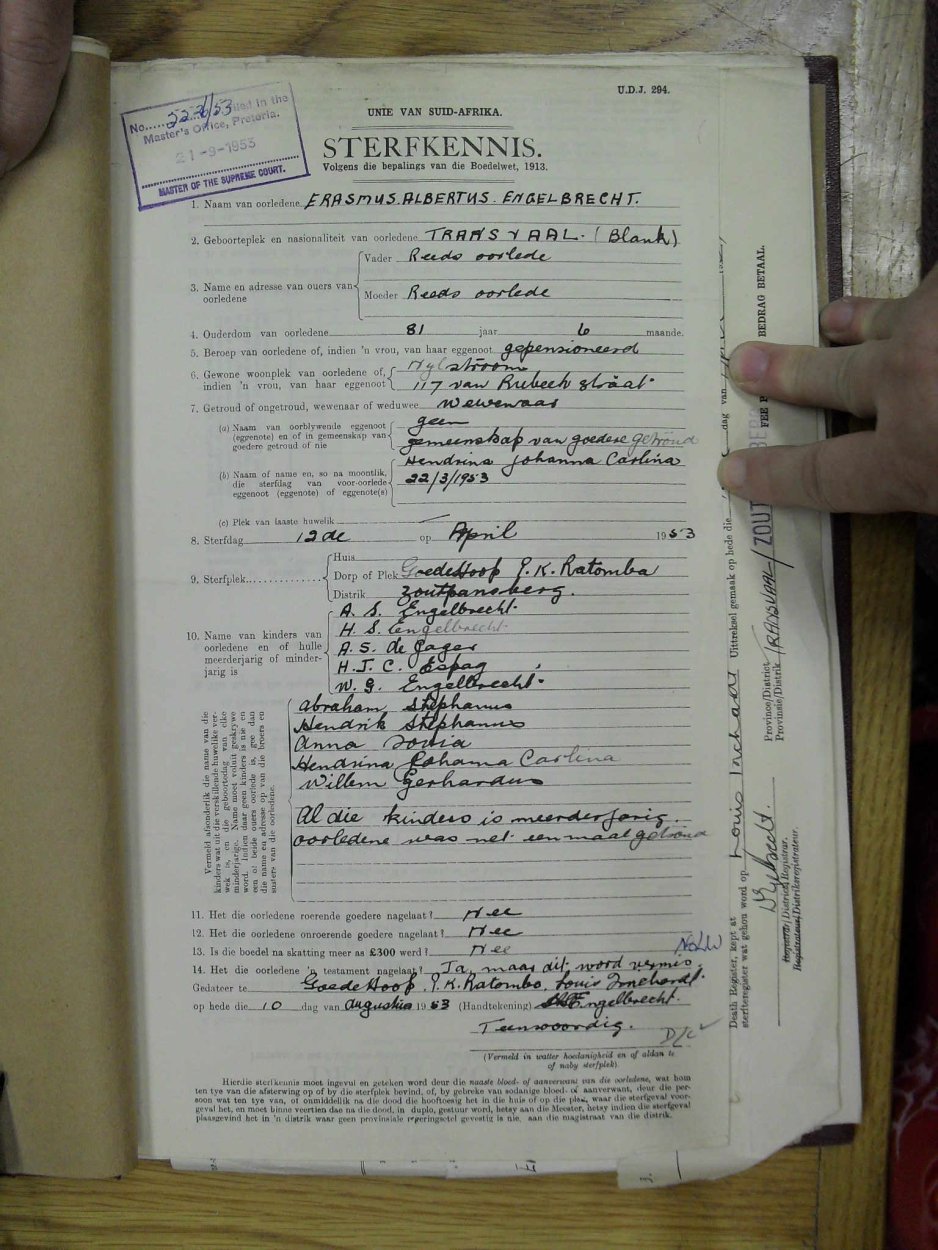 U.D.J. 294.
No. 2226/53 filed in the
Master's Office, Pretoria.
21-9-1953
MASTER OF THE SUPREME COURT.
UNIE VAN SUID-AFRIKA.
STERFKENNIS.
Volgens die bepalings van die Boedelwet, 1913.
1. Naam van oorledene ERASMUS ALBERTUS ENGELBRECHT.
2. Geboorteplek en nasionaliteit van oorledene TRANSVAAL - (Blank)
3. Name en adresse van ouers van oorledene
Vader Reeds oorlede
Moeder Reeds oorlede
4. Ouderdom van oorledene 81 jaar 6 maande.
5. Beroep van oorledene of, indien 'n vrou, van haar eggenoot gepensioneerd
6. Gewone woonplek van oorledene of, Nylstroom
indien 'n vrou, van haar eggenoot 117 van Riebeeck straat
7. Getroud of ongetroud, wewenaar of weduwee wewenaar
(a) Naam van oorblywende eggenoot geen
(eggenote) en of in gemeenskap van
goedere getroud of nie gemeenskap van goedere getroud
Hendrina Johanna Carlina
(b) Naam of name en, so na moontlik, 22/3/1953
die sterfdag van voor-oorlede
eggenoot (eggenote) of eggenote(s)
(c) Plek van laaste huwelik —
8. Sterfdag 12de op April 1953
9. Sterfplek
Huis
Dorp of Plek GoedeHoop P.K. Ratombo
Distrik Zoutpansberg.
10. Name van kinders van
oorledene en of hulle
meerderjarig of minder-
jarig is
A. S. Engelbrecht.
H. S. Engelbrecht.
A. S. de Jager
H. J. C. Espag
W. G. Engelbrecht.
Vermeld afsonderlik die name van die
kinders wat uit die verskillende huwelike ver-
wek is, en die geboortedag van elke
minderjarige. Name moet voluit geskrywe
word. Indien daar geen kinders is nie en
een of beide ouers oorlede is, gee dan
die name en adresse op van die broers en
susters van die oorledene.
Abraham Stephanus
Hendrik Stephanus
Anna Sovia
Hendrina Johanna Carlina
Willem Gerhardus
Al die kinders is meerderjarig.
oorledene was net eenmaal getroud
11. Het die oorledene roerende goedere nagelaat? Nee
12. Het die oorledene onroerende goedere nagelaat? Nee
13. Is die boedel na skatting meer as £300 werd? Nee
14. Het die oorledene 'n testament nagelaat? Ja, maar dit word vermis.
Gedateer te GoedeHoop, P.K. Ratombo, Louis Trichardt.
op hede die 10 dag van Augustus 1953 (Handtekening) Engelbrecht.
Teenwoordig.
(Vermeld in watter hoedanigheid en of aldan te
of naby sterfplek).
Hierdie sterfkennis moet ingevul en geteken word deur die naaste bloed- of aanverwant van die oorledene, wat hom
ten tye van die afsterwing op of by die sterfplek bevind, of, by gebreke van sodanige bloed- of aanverwant, deur die per-
soon wat ten tye van, of onmiddellik na die dood die hooftoesig het in die huis of op die plek, waar die sterfgeval voor-
geval het, en moet binne veertien dae na die dood, in duplo, gestuur word, hetsy aan die Meester, hetsy indien die sterfgeval
plaasgevind het in 'n distrik waar geen provinsiale registrasie gevestig is nie, aan die magistraat van die distrik.
Death Register, kept at
sterfteregister wat gehou word op Louis Trichardt Uittreksel gemaak op hede die dag van
Registrar/District Registrar.
Registrateur/Distriksregistrateur.
Province/District
Provinsie/Distrik TRANSVAAL/ZOUT
BEDRAG BETAAL.